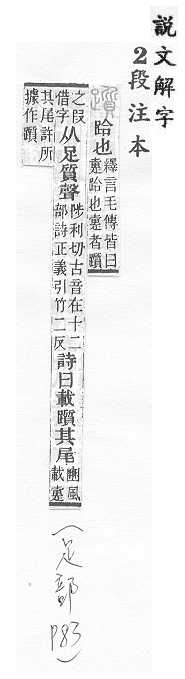 説文解字
2段注本
躓
跲也
釋言毛傳皆曰
疐跲也疐者躓
之叚
借字
从足質聲
陟利切古音在十二
部詩正義引竹二反
詩曰載躓其尾
豳風
載疐
其尾許所
據作躓
(足部 P83)